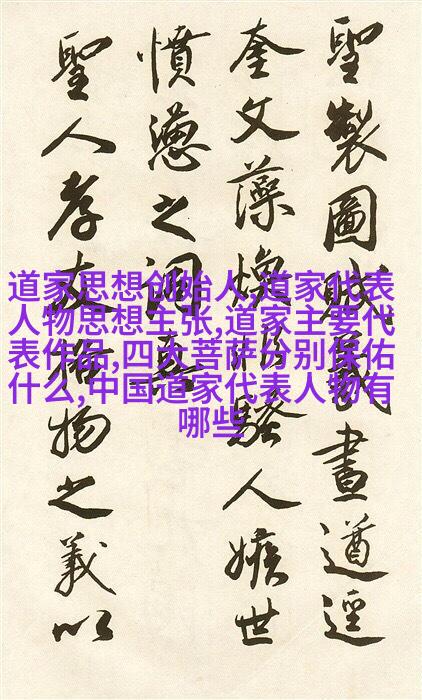 道家思想创始人,道家代表
人物思想主张,道家主要代
表作品,四大菩萨分别保佑
什么,中国道家代表人物有
哪些
聖製圖義畫遒逕
奎文藻煥騷人嫉世
憤懣之詞
聖人故格物之義以